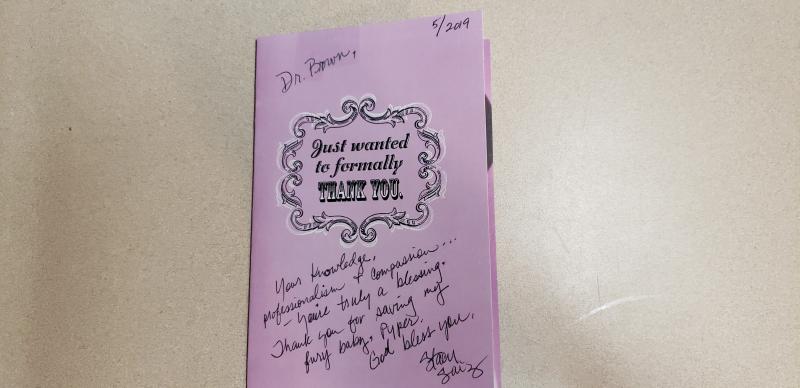 5/2019
Dr. Brown,
Just wanted
to formally
THANK YOU.
Your knowledge,
professionalism + compassion...
- you're truly a blessing.
Thank you for saving my
fury baby, Pyper.
God bless you,
Staci